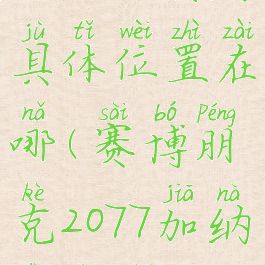 jù tǐ wèi zhì zài
具体位置在
nǎ sài bó Péng
哪(赛博朋
kè jiā nà
克2077加纳